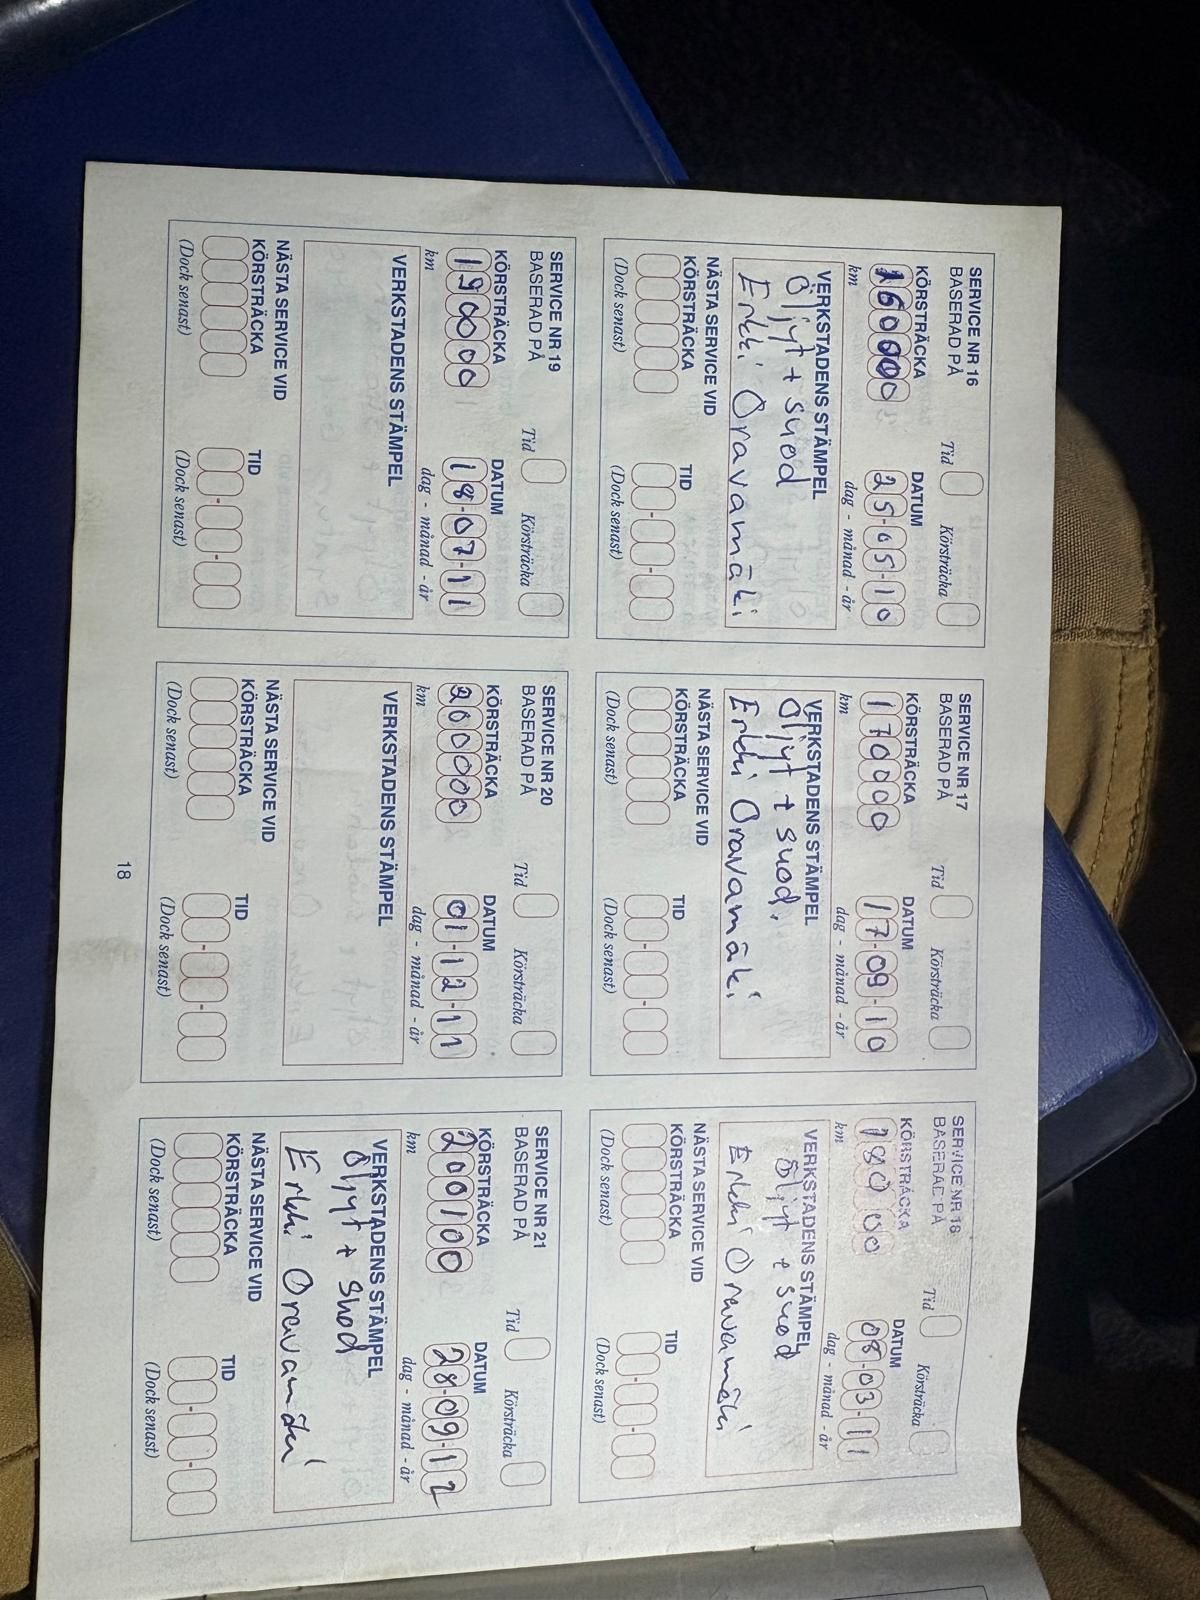 SERVICE NR 16
BASERAD PÅ Tid Körsträcka
KÖRSTRÄCKA DATUM
160000 25-05-10
km dag - månad - år
VERKSTADENS STÄMPEL
Öljyt + suod
Erkki Oravamäki
NÄSTA SERVICE VID
KÖRSTRÄCKA TID
(Dock senast) (Dock senast)
SERVICE NR 17
BASERAD PÅ Tid Körsträcka
KÖRSTRÄCKA DATUM
170000 17-09-10
km dag - månad - år
VERKSTADENS STÄMPEL
Öljyt + suod.
Erkki Oravamäki
NÄSTA SERVICE VID
KÖRSTRÄCKA TID
(Dock senast) (Dock senast)
SERVICE NR 18
BASERAD PÅ Tid Körsträcka
KÖRSTRÄCKA DATUM
180000 08-03-11
km dag - månad - år
VERKSTADENS STÄMPEL
Öljyt + suod
Erkki Oravamäki
NÄSTA SERVICE VID
KÖRSTRÄCKA TID
(Dock senast) (Dock senast)
SERVICE NR 19
BASERAD PÅ Tid Körsträcka
KÖRSTRÄCKA DATUM
190000 18-07-11
km dag - månad - år
VERKSTADENS STÄMPEL
NÄSTA SERVICE VID
KÖRSTRÄCKA TID
(Dock senast) (Dock senast)
SERVICE NR 20
BASERAD PÅ Tid Körsträcka
KÖRSTRÄCKA DATUM
200000 01-12-11
km dag - månad - år
VERKSTADENS STÄMPEL
NÄSTA SERVICE VID
KÖRSTRÄCKA TID
(Dock senast) (Dock senast)
SERVICE NR 21
BASERAD PÅ Tid Körsträcka
KÖRSTRÄCKA DATUM
200100 28-09-12
km dag - månad - år
VERKSTADENS STÄMPEL
Öljyt + suod
Erkki Oravamäki
NÄSTA SERVICE VID
KÖRSTRÄCKA TID
(Dock senast) (Dock senast)
18